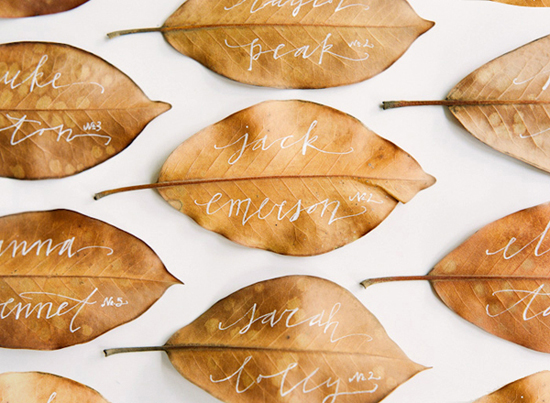 peak No2.
uke
ton No3.
jack
emerson No2.
anna
ennet No5.
sarah
No2.
el
ta